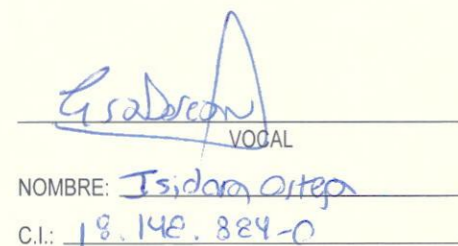 VOCAL
NOMBRE: Isidora Ortega
C.I.: 18.148.884-0